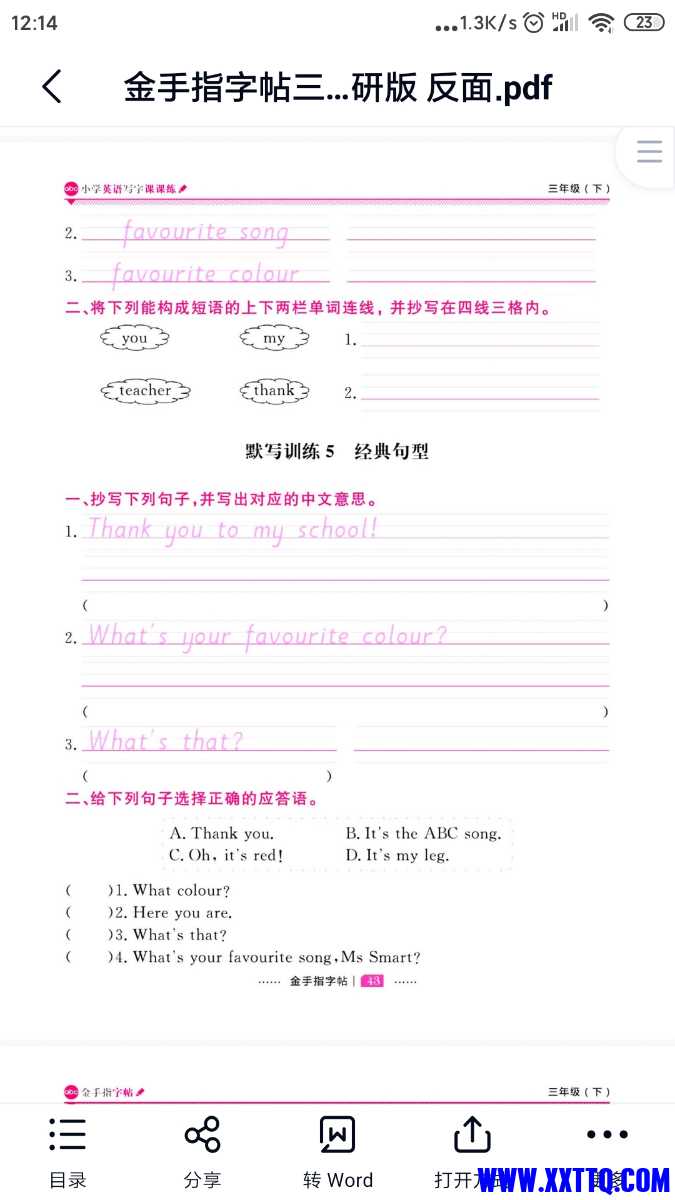 12:14 ...1.3K/s HD 23
金手指字帖三...研版 反面.pdf
abc 小学英语写字课课练 三年级（下）
2. favourite song
3. favourite colour
二、将下列能构成短语的上下两栏单词连线，并抄写在四线三格内。
you my 1.
teacher thank 2.
默写训练5 经典句型
一、抄写下列句子，并写出对应的中文意思。
1. Thank you to my school!
( )
2. What's your favourite colour?
( )
3. What's that?
( )
二、给下列句子选择正确的应答语。
A. Thank you. B. It's the ABC song.
C. Oh, it's red! D. It's my leg.
( )1. What colour?
( )2. Here you are.
( )3. What's that?
( )4. What's your favourite song, Ms Smart?
...... 金手指字帖 | 43 ......
abc 金手指字帖 三年级（下）
目录 分享 转 Word 打开方式 更多
WWW.XXTTQ.COM